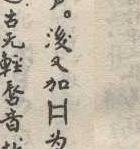 声。後又加日为
古无輕唇音